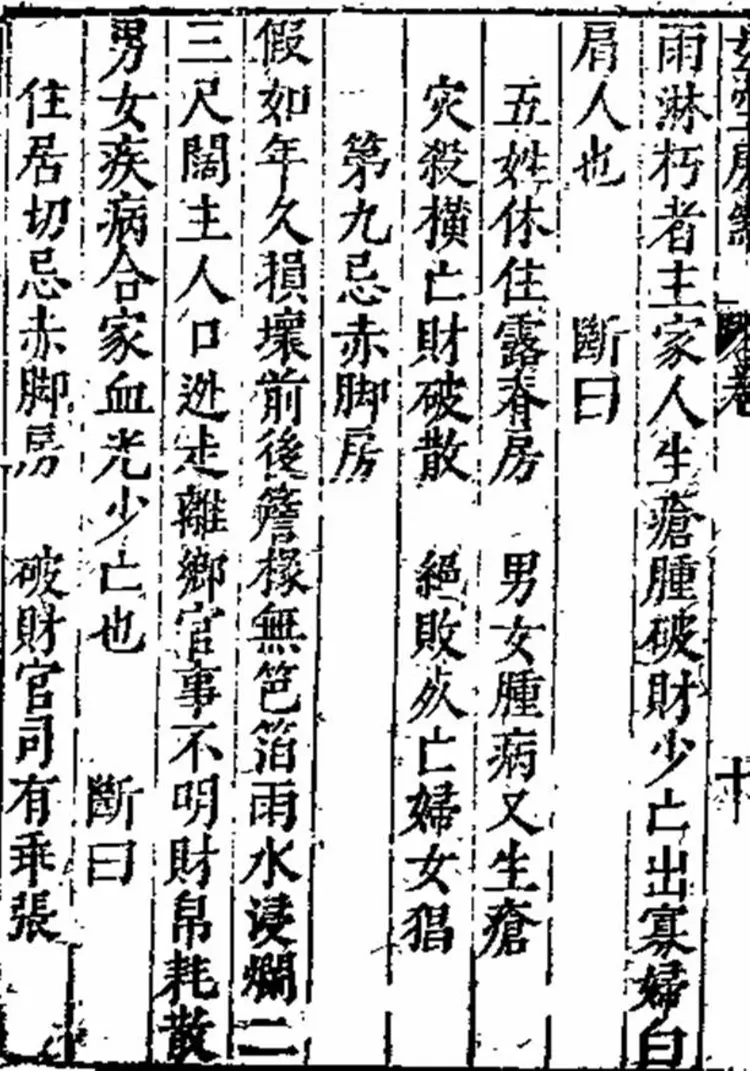 雨淋朽者主家人生瘡腫破財少亡出寡婦白
屑人也　斷曰
五姓休住露脊房　男女腫病又生瘡
灾殺橫亡財破散　絕敗亡婦女猖
第九忌赤脚房
假如年久損壞前後簷椽無笆箔雨水浸爛二
三尺闊主人口迯走離鄉官事不明財帛耗散
男女疾病合家血光少亡也　斷曰
住居切忌赤脚房　破財官司有乖張